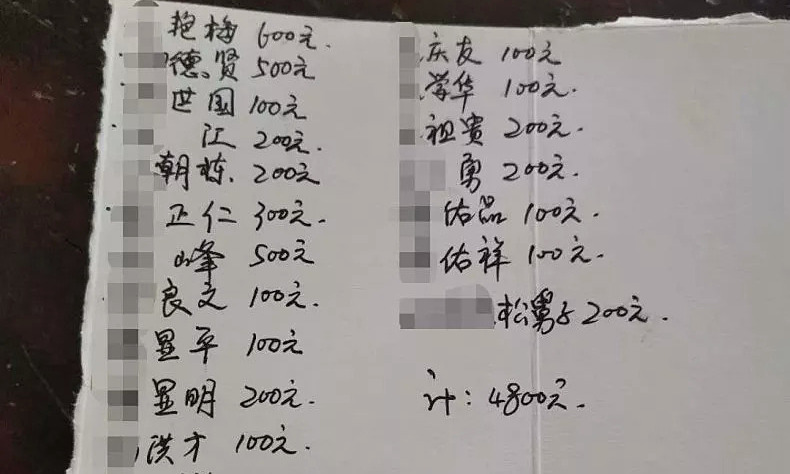 艳梅 600元.
德贤 500元
世国 100元
江 200元.
朝栋. 200元
正仁 300元.
峰 500元
良文 100元.
显平 100元
显明 200元.
洪才 100元.
庆友 100元
荣华 100元.
祖贵 200元.
勇 200元.
佑品 100元.
佑祥 100元.
松舅子 200元.
计: 4800元.